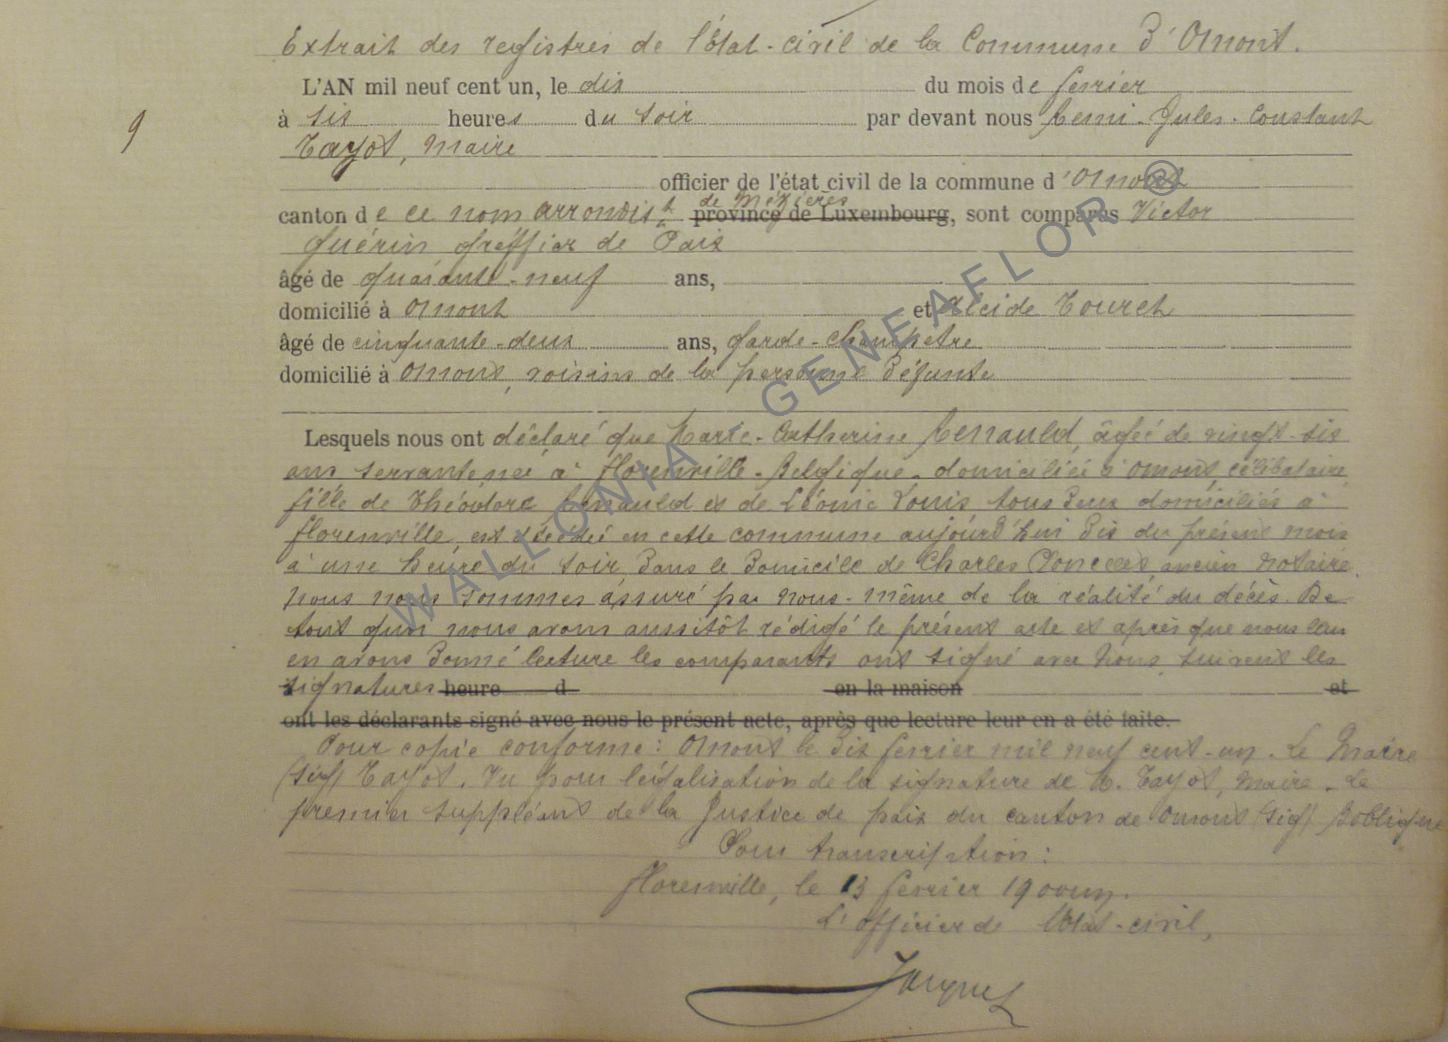 Extrait des registres de l'Etat-civil de la Commune d'Omont.
L'AN mil neuf cent un, le dix du mois de fevrier
9
à six heures du soir par devant nous Remi-Jules-Constant
Tayot, Maire
officier de l'état civil de la commune d'Omont
de Mézières
canton de ce nom arrondist. province de Luxembourg, sont comparus Victor
Guérin Gréffier de Paix
âgé de quarante-neuf ans,
domicilié à Omont et Alcide Touret
âgé de cinquante-deux ans, garde-champêtre
domicilié à Omont, voisins de la personne défunte
Lesquels nous ont déclaré que Marie-Catherine Renauld, âgée de vingt-six
ans servante née à Florenville-Belgique-domiciliée à Omont, célibataire
fille de Théodore Renauld et de Léonie Louis tous deux domiciliés à
Florenville, est décédée en cette commune aujourd'hui dix du présent mois
à une heure du soir, dans le domicile de Charles ancien notaire.
Nous nous sommes assuré par nous-même de la réalité du décès. De
tout quoi nous avons aussitôt rédigé le présent acte et après que nous leur
en avons donné lecture les comparants ont signé avec Nous suivent les
signatures heure d en la maison et
ont les déclarants signé avec nous le présent acte, après que lecture leur en a été faite.
Pour copie conforme: Omont le dix fevrier mil neuf cent-un. Le Maire
(sig) Tayot. Vu pour légalisation de la signature de M. Tayot, maire. Le
premier suppléant de la Justice de paix du canton de Omont (sig)
Pour transcription:
Florenville, le 13 fevrier 19 cent un.
L'officier de l'Etat-civil,
Jacques
WALLONIA - GENEAFLOR ®